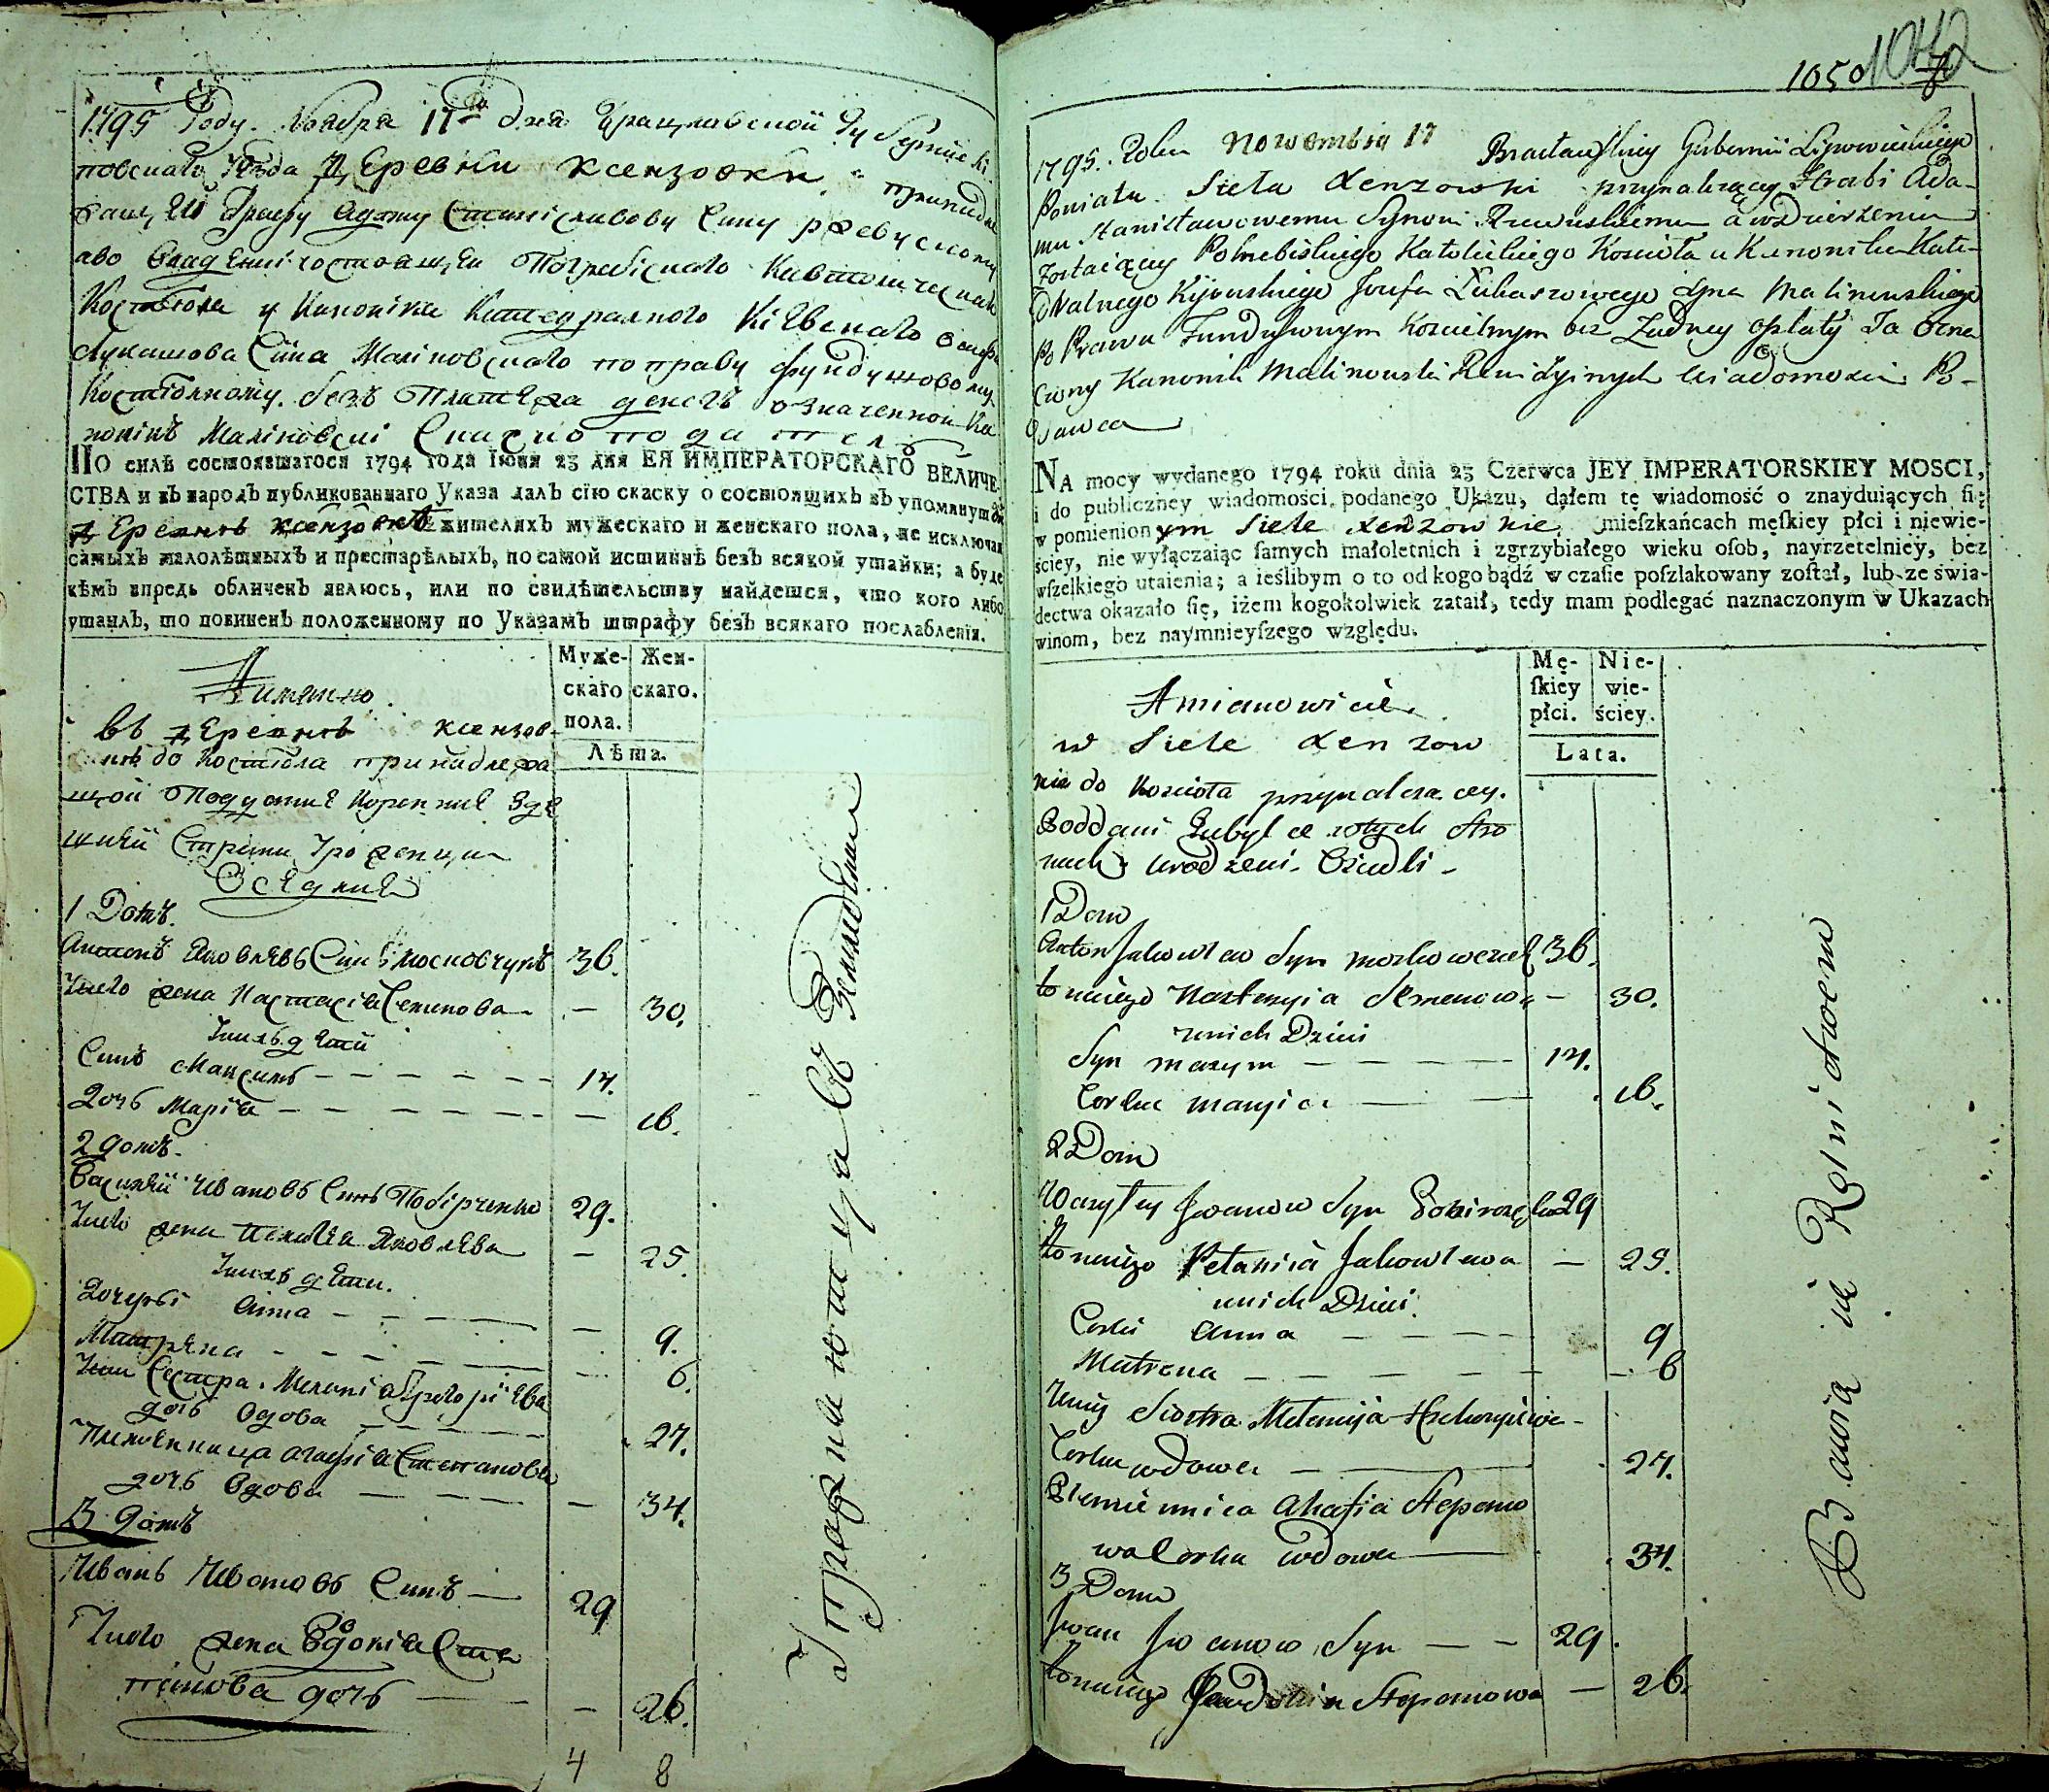 1795 Году. Ноября 17го дня Брацлавской Губернiи Лi
повскаго уезда деревни Ксензовки, принадле
жащей Графу Адаму Станiславову Сину Ржевускому
аво владенiи состоящеи Погребiскаго Католическаго
Костiола и Каноника Катедралного Кiевскаго
Лукашова Сина Малiновскаго по праву фундушовому
Костiолному. безъ Платежа денегъ означенной Ка
нонiкъ Малiновскi Скаскоподатель
ПО силѣ состоявшагося 1794 года Iюня 23 дня ЕЯ ИМПЕРАТОРСКАГО ВЕЛИЧЕ-
СТВА и въ народъ публикованнаго Указа далъ сiю скаску о состоящихъ въ упомянутой
деревнѣ ксензовкѣ жителяхъ мужескаго и женскаго пола, не исключая
самыхъ малолѣтныхъ и престарѣлыхъ, по самой истиннѣ безъ всякой утайки; а буде
кѣмъ впредь обличенъ явлюсь, или по свидѣтельству найдется, что кого либо
утаилъ, то повиненъ положенному по Указамъ штрафу безъ всякаго послабленiя.
Муже- Жен-
скаго скаго.
пола.
Лѣта.
Аимянно.
въ деревнѣ ксензов
кѣ до Костiола принадлежа
щой Подданне Коренние Зде
шней Страни Урожденци
Оседлие
1 Домъ.
Антонъ Яковлевъ Синъ Московчукъ 36.
Унего жена Настасiя Семенова — 30.
Унихъ дети
Синъ Максимъ — 14.
Дочь Марiя — 16.
2 домъ.
Василiй Ивановъ Синъ Побiрченко 29.
Унего жена Пелагея Яковлева — 25.
Унихъ дети.
Дочери Анна — 9.
Матрена — 6.
Ния Сестра Меланiя Григорiева
дочь вдова 24.
Племенница Агафiя Степанова
дочь вдова — 34.
3 домъ
Иванъ Ивановъ Синъ — 29
Унего жена Евдокiя Сте
панова дочь — 26.
4 8
Упражняютца въ Земледелии
1050 1042
1795. Roku Nowembra 17 Bracławskiey Gubernii Lipowieckiego
Powiatu Sieła Xenzowki przynalezącey Hrabi Ada-
mu Stanisławowemu Synowi Rzewuskiemu a w Dzierzeniu
Zostaiącey Pohrebiskiego Katolickiego Koscioła u Kanonika Kate-
dralnego Kijowskiego Jozefa Łukaszowego Syna Malinowskiego
Po Prawu Funduszowym Koscielnym bez Zadney opłaty Ja Ozna
czony Kanonik Malinowski Rewizyinych Wiadomosci Po-
dawca
NA mocy wydanego 1794 roku dnia 23 Czerwca JEY IMPERATORSKIEY MOSCI,
i do publiczney wiadomości podanego Ukazu, dałem tę wiadomość o znayduiących ſię
w pomienionym Siele Xenzowkie, mieſzkańcach męſkiey płci i niewie-
ściey, nie wyłączaiąc ſamych małoletnich i zgrzybiałego wieku oſob, nayrzetelniey, bez
wſzelkiego utaienia; a ieślibym o to od kogo bądź w czaſie poſzlakowany zoſtał, lub ze świa-
dectwa okazało ſię, iżem kogokolwiek zataił, tedy mam podlegać naznaczonym w Ukazach
winom, bez naymnieyſzego względu.
Mę- Nie-
ſkiey wie-
płci. ściey.
Lata.
Amianowicie.
w Siele Xenzow
kie do Koscioła przynalezacey.
Poddani Zubyłe wtych Stro
nach urodzeni. Osiedli
1 Dom
Anton Jakowlew Syn Moskowczuk 36.
Zonaiego Nastazyia Semenowa — 30.
unich Dzieci
Syn Maxym — 14.
Corka Maryia — 16.
2 Dom
Wasyley Jwanow Syn Pobirczęko 29
Zonaiego Pelahia Jakowlewa — 25.
unich Dzieci.
Corki Anna — 9
Matrona — 6
Jeniż Siostra Melanija Hrehoryiewa-
Corka wdowa — 24.
Plemiennica Ahafia Stepano
wa Corka wdowa — 34.
3 Dom
Jwan Jwanow Syn — 29.
Zonaiego Jewdokia Stepanowa — 26.
Bawia się Rolnictwem